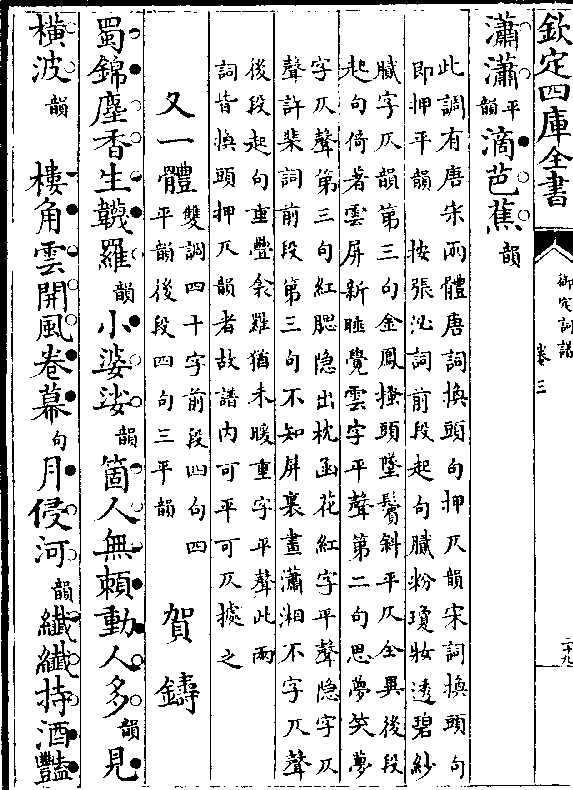 欽定四庫全書
御定詞譜
卷三
二十九
瀟瀟平韻滴芭蕉韻
此調有唐宋兩體唐詞換頭句押仄韻宋詞換頭句
即押平韻 按張泌詞前段起句膩粉瓊妝透碧紗
膩字仄韻第三句金鳳搔頭墜鬢斜平仄全異後段
起句倚著雲屏新睡覺雲字平聲第二句思夢笑夢
字仄聲第三句紅腮隱出枕函花紅字平聲隱字仄
聲許棐詞前段第三句不知屏裏畫瀟湘不字仄聲
後段起句重疊衾羅猶未暖重字平聲此兩
詞皆換頭押仄韻者故譜内可平可仄據之
又一體雙調四十字前段四句四
平韻後段四句三平韻 賀鑄
蜀錦塵香生韈羅韻小婆娑韻箇人無賴動人多韻見
橫波韻 樓角雲開風卷幕句月侵河韻纖纖持酒豔